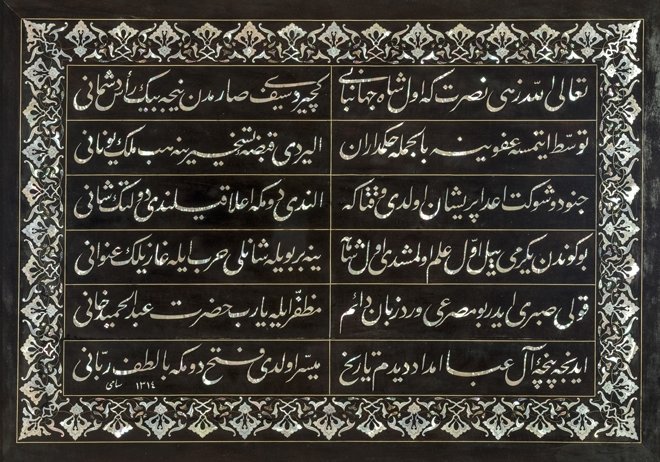 تعالی الله زهی نصرت که اول شاه جهانبانی
کچیردی سیفی صارمدن نیجه بیك رأس دشمانی
توسط ایتمسه عفوینه بالجمله حکمداران
الیردی قبضۀ تسخیرینه هب ملك یونانی
جنود و شوکت اعدا پریشان اولدی وقتاکه
الندی دومکه اعلا قیلندی دولتك شانی
بوکوندن یکرمی ییل اول علم اولمشدی اول شاه
ینه بر بویله شانلی حرب ایله غازیلك عنوانی
قولی صبری ایدر بو مصرعی ورد زبان دائم
مظفر ایله یا رب حضرت عبد الحمید خانی
ایدنجه پنجۀ آل عبا امداد دیدم تاریخ
میسر اولدی فتح دومکه بالطف ربانی
سامی ١٣١٤